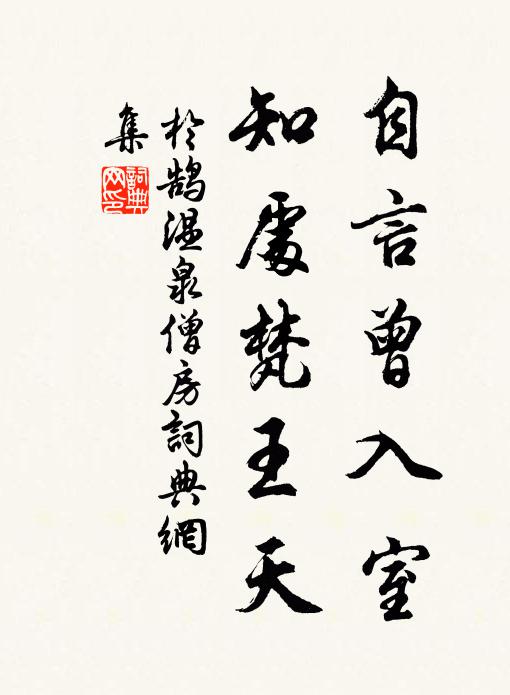 自言曾入室
知處梵王天
於鵠溫泉僧房詞典網
集
詞典
网印